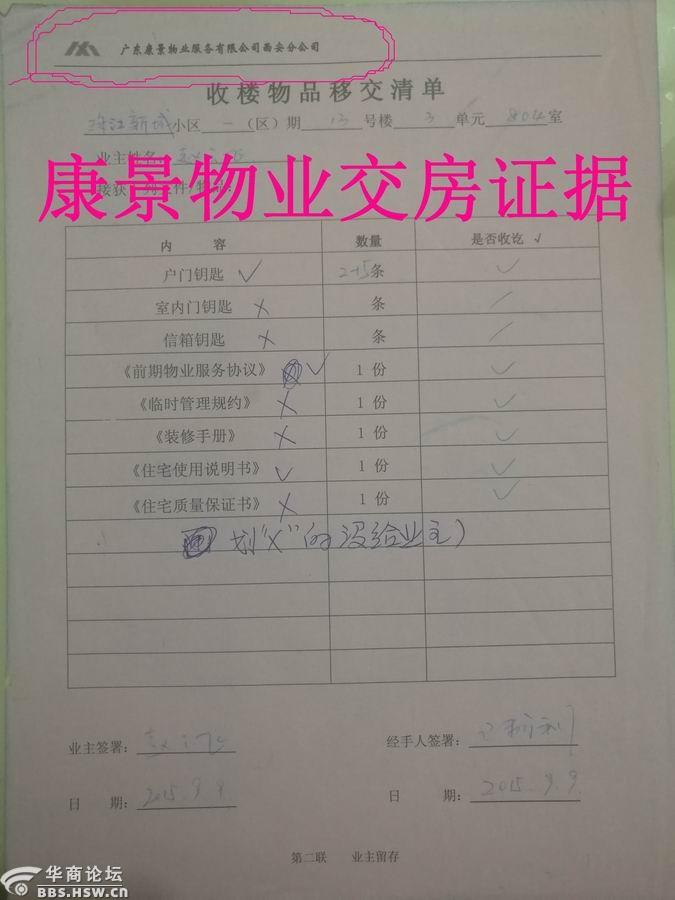 广东康景物业服务有限公司西安分公司
收楼物品移交清单
珠江新城小区 一 (区)期 13 号楼 3 单元 804 室
业主姓名
康景物业交房证据
接获
内 容 数量 是否收讫 √
户门钥匙 √ 2+5条 √
室内门钥匙 × 条 /
信箱钥匙 × 条 /
《前期物业服务协议》 √ 1 份 √
《临时管理规约》 × 1 份 √
《装修手册》 × 1 份 √
《住宅使用说明书》 √ 1 份 √
《住宅质量保证书》 × 1 份 √
划"×"的没给业主)
业主签署:
经手人签署:
日 期: 2015.9.9
日 期: 2015.9.9
第二联 业主留存
华商论坛
BBS.HSW.CN